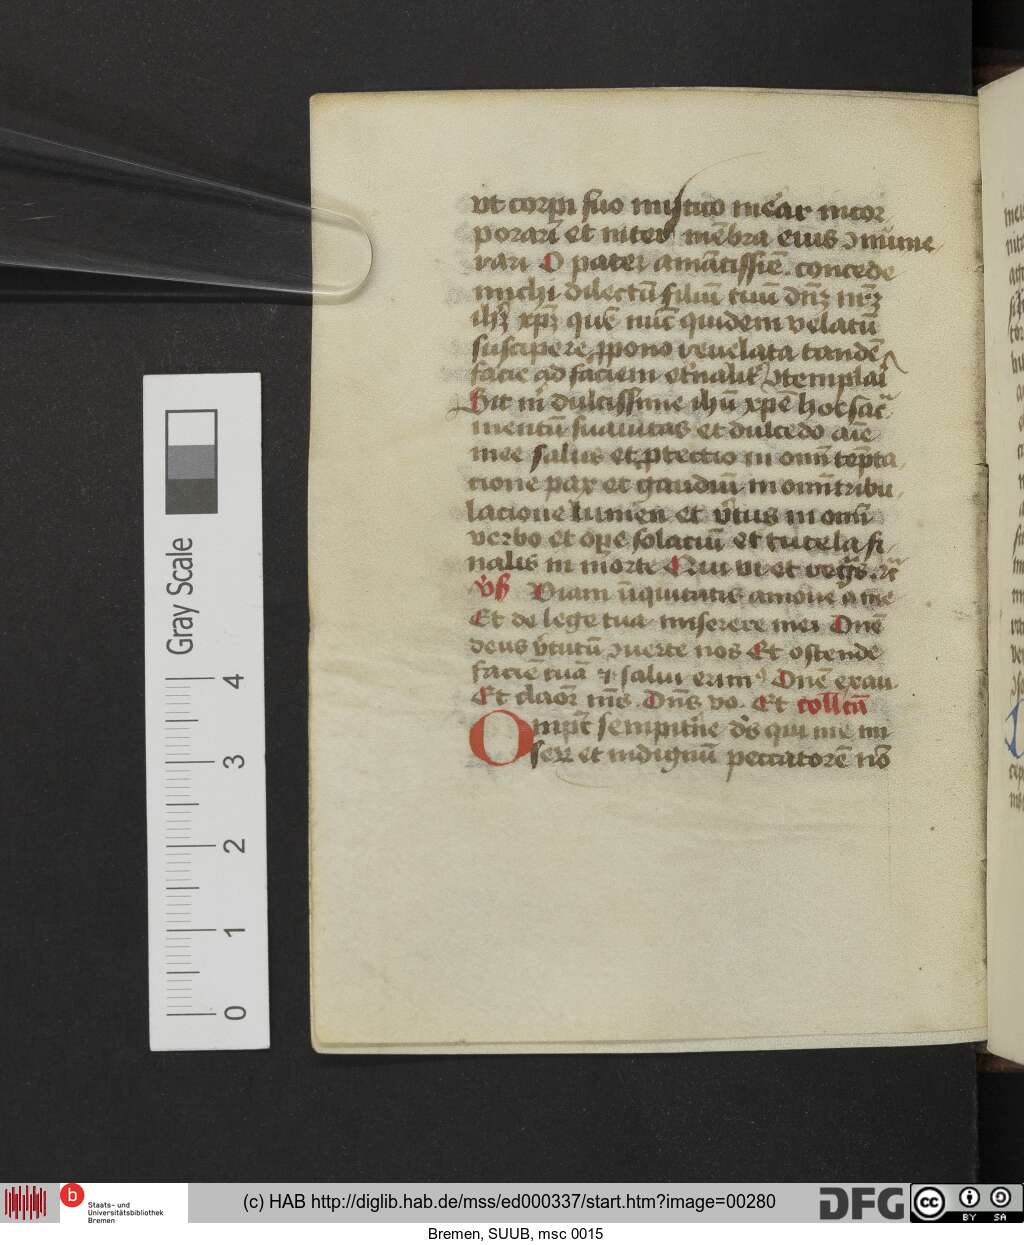 vt corpi suo mistico mear incor
porari et inter mēbra eius ɔnume
rari O pater amātissīe concede
michi dilectū filiū tuū dn̄ꝫ nr̄ꝫ
ih̄ꝫ xp̄ꝫ quē nūc quidem velatū
suscipere ꝓpono reuelata tandē
facie ad faciem et̄nalit̄ ɔtemplari
Sit m̄ dulcissime ihū xp̄e hoc sac̄
mentū suauitas et dulcedo aīe
mee salus et ꝓtectio in om̄i tēpta
cione pax et gaudiū in om̄i tribu
lacione lumen et v̄tus in om̄i
verbo et oꝑe solaciū et tutela fi
nalis in morte
v̄ß Viam īiquitatis amoue a me
Et de lege tua miserere mei Dn̄e
deus v̄tutū ɔuerte nos Et ostende
faciē tuā ⁊ salui erim⁹ Dn̄e exau
Et clāor m̄s Dn̄s vo Et coll̄cā
Om̄ip̄t sempit̄ne ds̄ qui me mi
serr et indignū peccatorē nō
Gray Scale
4
3
2
1
0
b Staats- und
Universitätsbibliothek
Bremen
(c) HAB http://diglib.hab.de/mss/ed000337/start.htm?image=00280
DFG
cc BY SA
Bremen, SUUB, msc 0015